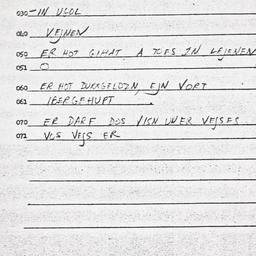 030 - IN UCOL
040 VEJNEN
050 ER HOT GIHAT A TOES IN LEJENEN
051 O
060 ER HOT DURXGELOZN, EJN VORT
061 IBERGEHUPT .
070 ER DARF DOS VISN UNER VEJSES
071 VOS VEJS ER